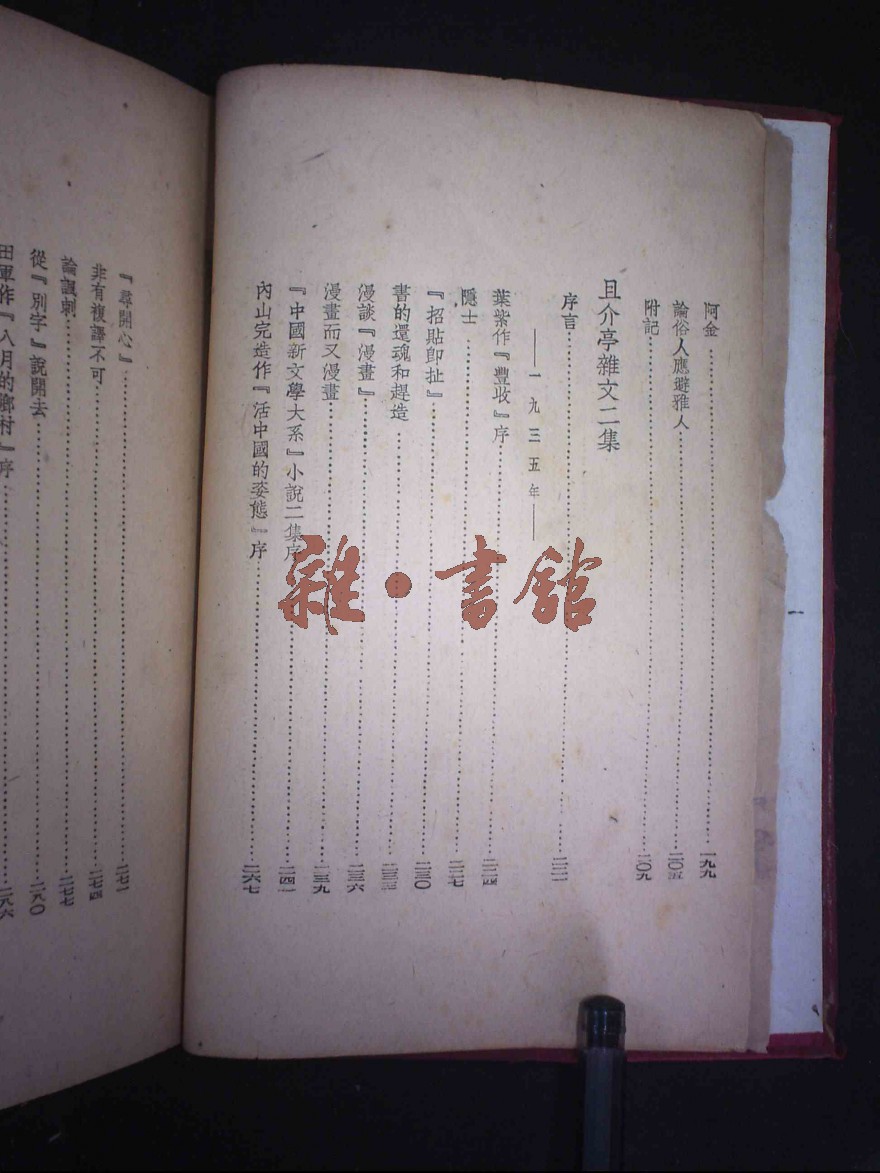 阿金……一九九
論俗人應避雅人……二〇五
附記……二〇九
且介亭雜文二集
——一九三五年——
序言……二二一
葉紫作『豐收』序……二二四
隱士……二二七
『招貼卽扯』……二三〇
書的還魂和趕造……二三三
漫談『漫畫』……二三六
漫畫而又漫畫……二三九
『中國新文學大系』小說二集序……二四一
內山完造作『活中國的姿態』序……二六七
『尋開心』……二七一
非有複譯不可……二七四
論諷刺……二七七
從『別字』說開去……二八〇
田軍作『八月的鄉村』序……二八六
雜·書館